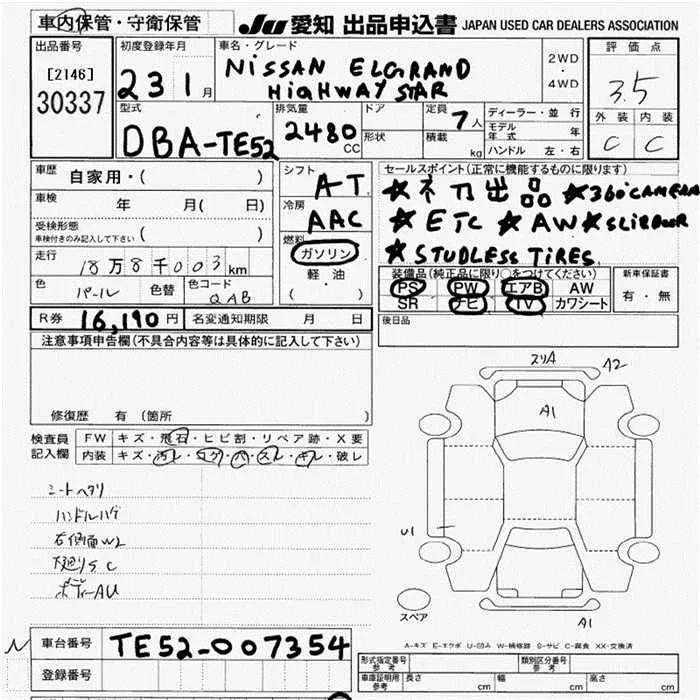 車内保管・守衛保管 JU 愛知 出品申込書 JAPAN USED CAR DEALERS ASSOCIATION
出品番号 初度登録年月 車名・グレード 評価点
[2146] 23 1月 NISSAN ELGRAND 2WD・4WD 3.5
30337 HIGHWAY STAR
型式 排気量 ドア 定員 ディーラー・並行 外装 内装
DBA-TE52 2480CC 形状 7人 積載 kg モデル年式 年 C C
ハンドル 左・右
車歴 自家用・( ) シフト AT セールスポイント(正常に機能するものに限ります)
車検 年 月( 日) 冷房 AAC ★ネ刀出品 ★360°CAMERA
受検形態 ( ) ★ETC ★AW ★SLIDOOR
車検付きのみ記入して下さい 燃料 ガソリン ★STUDLESS TIRES
走行 18万8千003km 軽・油 装備品(純正品に限り○をつけてください) 新車保証書
色 パール 色替 色コード QAB ( ) PS PW エアB AW 有・無
SR ナビ TV カワシート
R券 16,190円 名変通知期限 月 日 後日品
注意事項申告欄(不具合内容等は具体的に記入して下さい)
修復歴 有(箇所
検査員 FW キズ・飛石・ヒビ割・リペア跡・X要
記入欄 内装 キズ・汚レ・コゲ・穴・スレ・キレ・破レ
シートヘタリ
ハンドルハゲ
右側面W2
下廻りSC
ボデーAU
スリA A2
A1
U1
スペア
A1
A-キズ E-エクボ U-凹み W-補修跡 S-サビ C-腐食 XX-交換済
車台番号 TE52-007354
登録番号
形式指定番号 参考 類別区分番号 参考
車庫証明用 参考 長さ cm 幅 cm 高さ cm